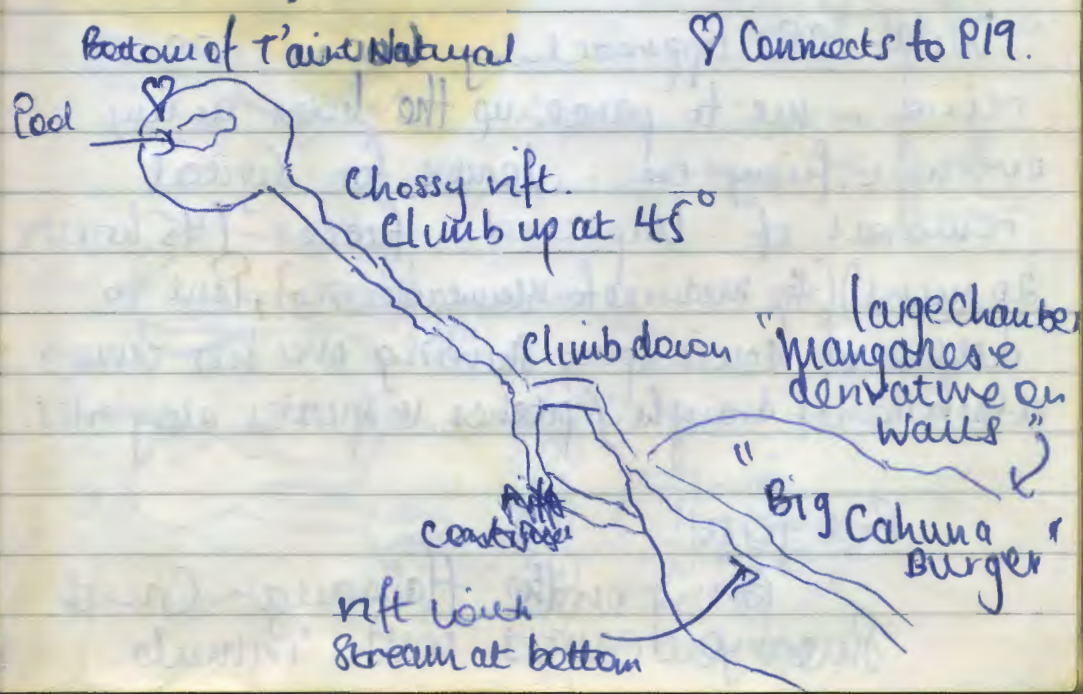 Bottom of T'aint Natural
♡ Connects to P19.
Pool
Chossy rift.
Climb up at 45°
Climb down
large Chamber
"Manganese
derivative on
Walls"
"Big Cahuna
Burger"
rift with
Stream at bottom